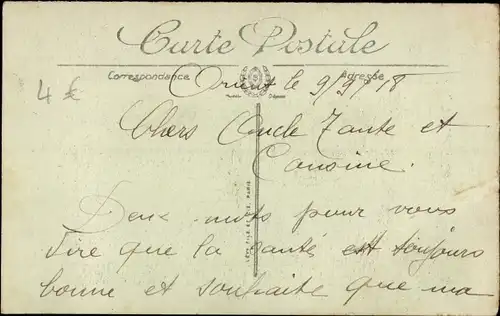 Carte Postale
Correspondance
Adresse
Orient le 9/9/18
4 €
Chers Oncle Tante et
Cousine.
Deux mots pour vous
dire que la santé est toujours
bonne et souhaite que ma